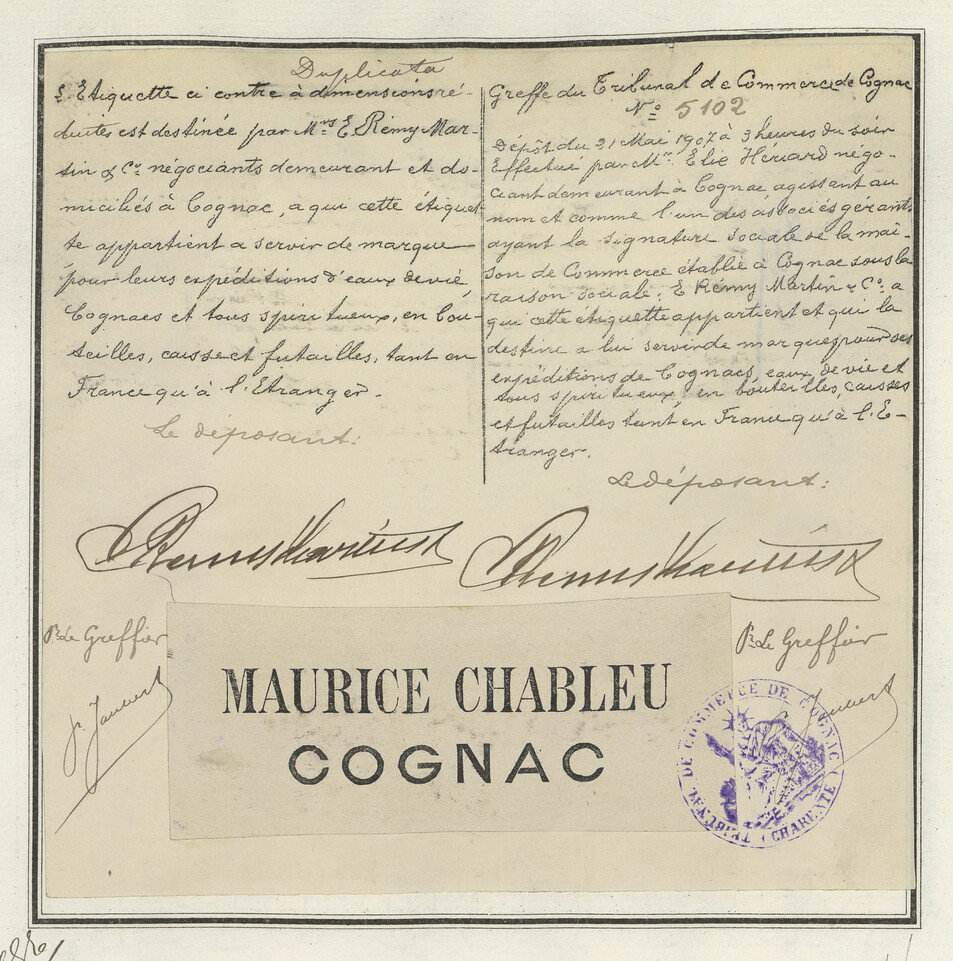 Duplicata
L'Etiquette ci contre à dimensions ré-
duites est destinée par Mrs E. Rémy Mar-
tin & Co négociants demeurant et do-
miciliés à Cognac, a qui cette étiquet-
te appartient a servir de marque
pour leurs expéditions d'eaux de vie,
Cognacs et tous spiritueux, en bou-
teilles, caisse et futailles, tant en
France qu'à l'Etranger.
Le déposant:
Greffe du Tribunal de Commerce de Cognac
No 5102
Dépôt du 21 Mai 1907 à 3 heures du soir
Effectué par Mr. Elie Hériard négo-
ciant demeurant à Cognac agissant au
nom et comme l'un des associés gérants
ayant la signature sociale de la mai-
son de Commerce établie à Cognac sous la
raison sociale: E Rémy Martin & Co. a
qui cette etiquette appartient et qui la
destine a lui servir de marques pour ses
expéditions de Cognacs, eaux de vie et
tous spiritueux en bouteilles, caisses
et futailles tant en France qu'à l'E-
tranger.
Le déposant:
E Remy Martin &
E Remy Martin &
Pr. Le Greffier
Pr. Le Greffier
MAURICE CHABLEU
COGNAC
TRIBUNAL DE COMMERCE DE COGNAC (CHARENTE)